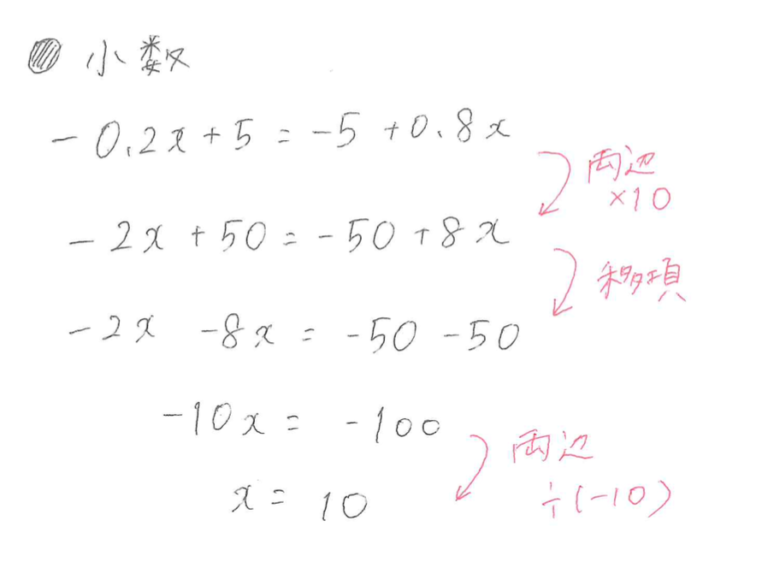 小数
-0.2x+5=-5+0.8x
両辺
×10
-2x+50=-50+8x
移項
-2x -8x=-50-50
-10x=-100
両辺
÷(-10)
x=10